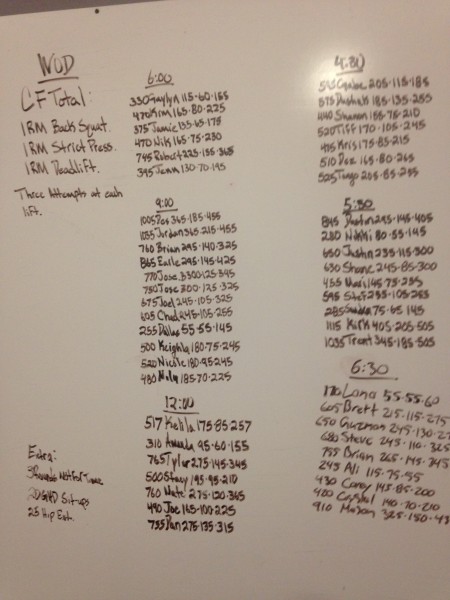 WOD
CF Total:
1RM Back Squat.
1RM Strict Press.
1RM Deadlift.
Three Attempts at each
lift.
Extra:
3 Rounds Not For Time
20 GHD Sit-ups
25 Hip Ext.
6:00
330 Jaylyn 115-60-155
470 Kim 165-80-225
375 Jamie 135-65-175
470 Nik 165-75-230
745 Robert 225-155-365
395 Jenn 130-70-195
9:00
1005 Des 365-185-455
1035 Jordan 365-215-455
760 Brian 295-140-325
865 Earle 295-145-425
770 Jose 300-125-345
750 Jose 300-125-325
675 Joel 245-105-325
605 Chad 245-105-255
255 Dallas 55-55-145
500 Keighla 180-75-245
520 Nicole 180-95-245
480 Molly 185-70-225
12:00
517 Kelila 175-85-257
310 Amanda 95-60-155
765 Tyler 275-145-345
500 Stacy 195-95-210
760 Nate 275-120-365
490 Joe 165-100-225
735 Dan 275-135-315
4:30
205-115-185
575 185-135-255
440 Shannon 155-75-210
520 Tiff 170-105-245
Kris 175-85-215
510 Dez 165-80-265
525 Tango 205-85-255
5:30
845 Dustin 295-145-405
280 Nikki 80-55-145
650 Justin 235-115-300
630 Shane 245-85-300
455 145-75-235
595 235-105-255
285 75-65-145
1115 Kirk 405-205-505
1035 Trent 345-185-505
6:30
170 Lana 55-55-60
605 Brett 215-115-275
650 Guzman 245-130-27
680 Steve 245-110-325
755 Brian 265-145-345
245 Ali 115-75-55
430 Corey 145-85-200
420 Crystal 140-70-210
910 Mason 325-150-43